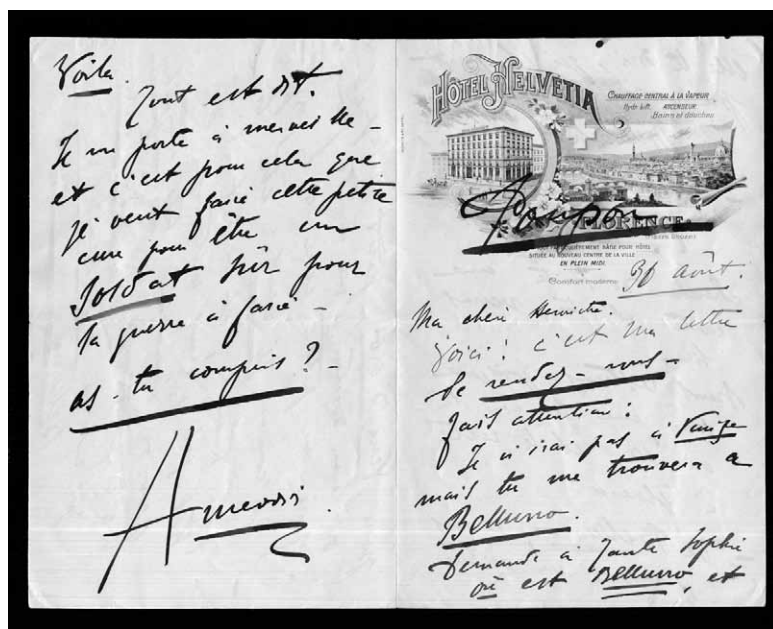 Voila.
Tout est dit.
Je me porte à merveille -
et c'est pour cela que
je veut faire cette petite
cure pour être un
Soldat sûr pour
la guerre à faire -
as-tu compris? -
HÔTEL HELVETIA
CHAUFFAGE CENTRAL À LA VAPEUR
Hydr. Lift. ASCENSEUR
Bains et douches
FLORENCE
BÂTIE POUR HÔTEL
SITUÉE AU NOUVEAU CENTRE DE LA VILLE
EN PLEIN MIDI.
Comfort moderne
30 août.
Ma cheri
Voici! c'est ma lettre
de rendez-vous -
fait attention:
Je n'irai pas à Venise
mais tu me trouvera a
Belluno.
Demande à Tante Sophie
où est Belluno, et